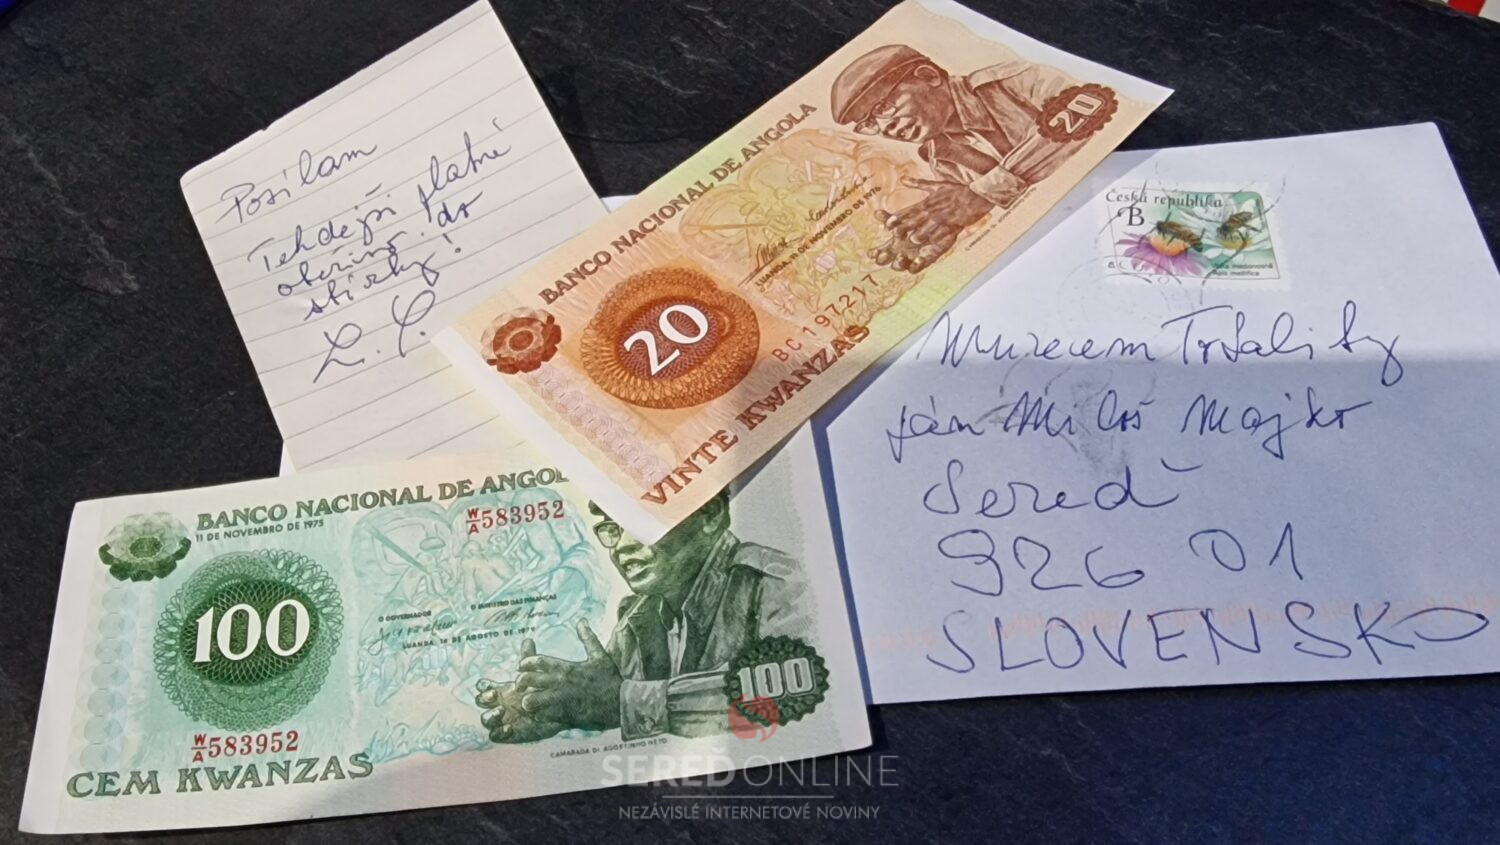 Posílam
Tehdejší platné
oběživo do
sbírky!
BANCO NACIONAL DE ANGOLA
20
20
LUANDA, 11 DE NOVEMBRO DE 1976
BC197217
VINTE KWANZAS
BANCO NACIONAL DE ANGOL
11 DE NOVEMBRO DE 1975
W/A 583952
100
O GOVERNADOR
O MINISTRO DAS FINANÇAS
LUANDA, 14 DE AGOSTO DE 1979
100
W/A 583952
CAMARADA DR. AGOSTINHO NETO
CEM KWANZAS
Česká republika
B
Apis mellifica
Muzeem
Ján Miloš Majko
Sereď
926 01
SLOVENSKO
SEREĎONLINE
NEZÁVISLÉ INTERNETOVÉ NOVINY